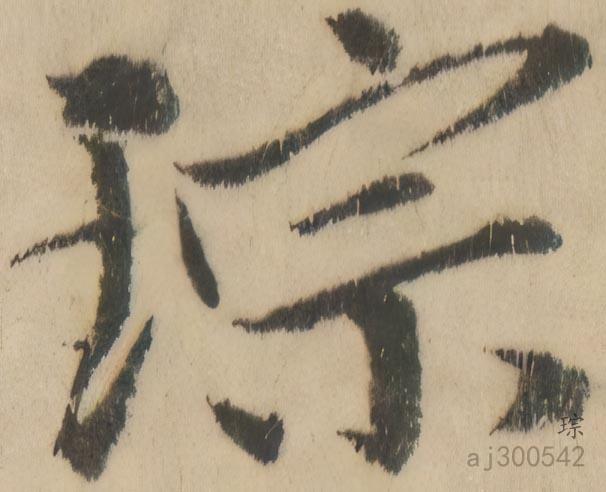 琮
琮
aj300542